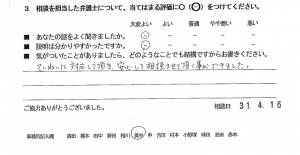 3 相談を担当した弁護士について、当てはまる評価に○(○)をつけてください。
大変よい よい 普通 やや悪い 悪い
■ あなたの話をよく聞きましたか。
■ 説明は分かりやすかったですか。
■ 気がついたことがありましたら、どのようなことでも結構ですからお書きください。
ていねいに対応して頂き、安心して相談させて頂く事ができました。
ご協力ありがとうございました。
相談日 31.4.16
事務所記入欄 森田 榎本 田中 野田 相川 中 吉川 村本 小野塚 神田 池末 赤木